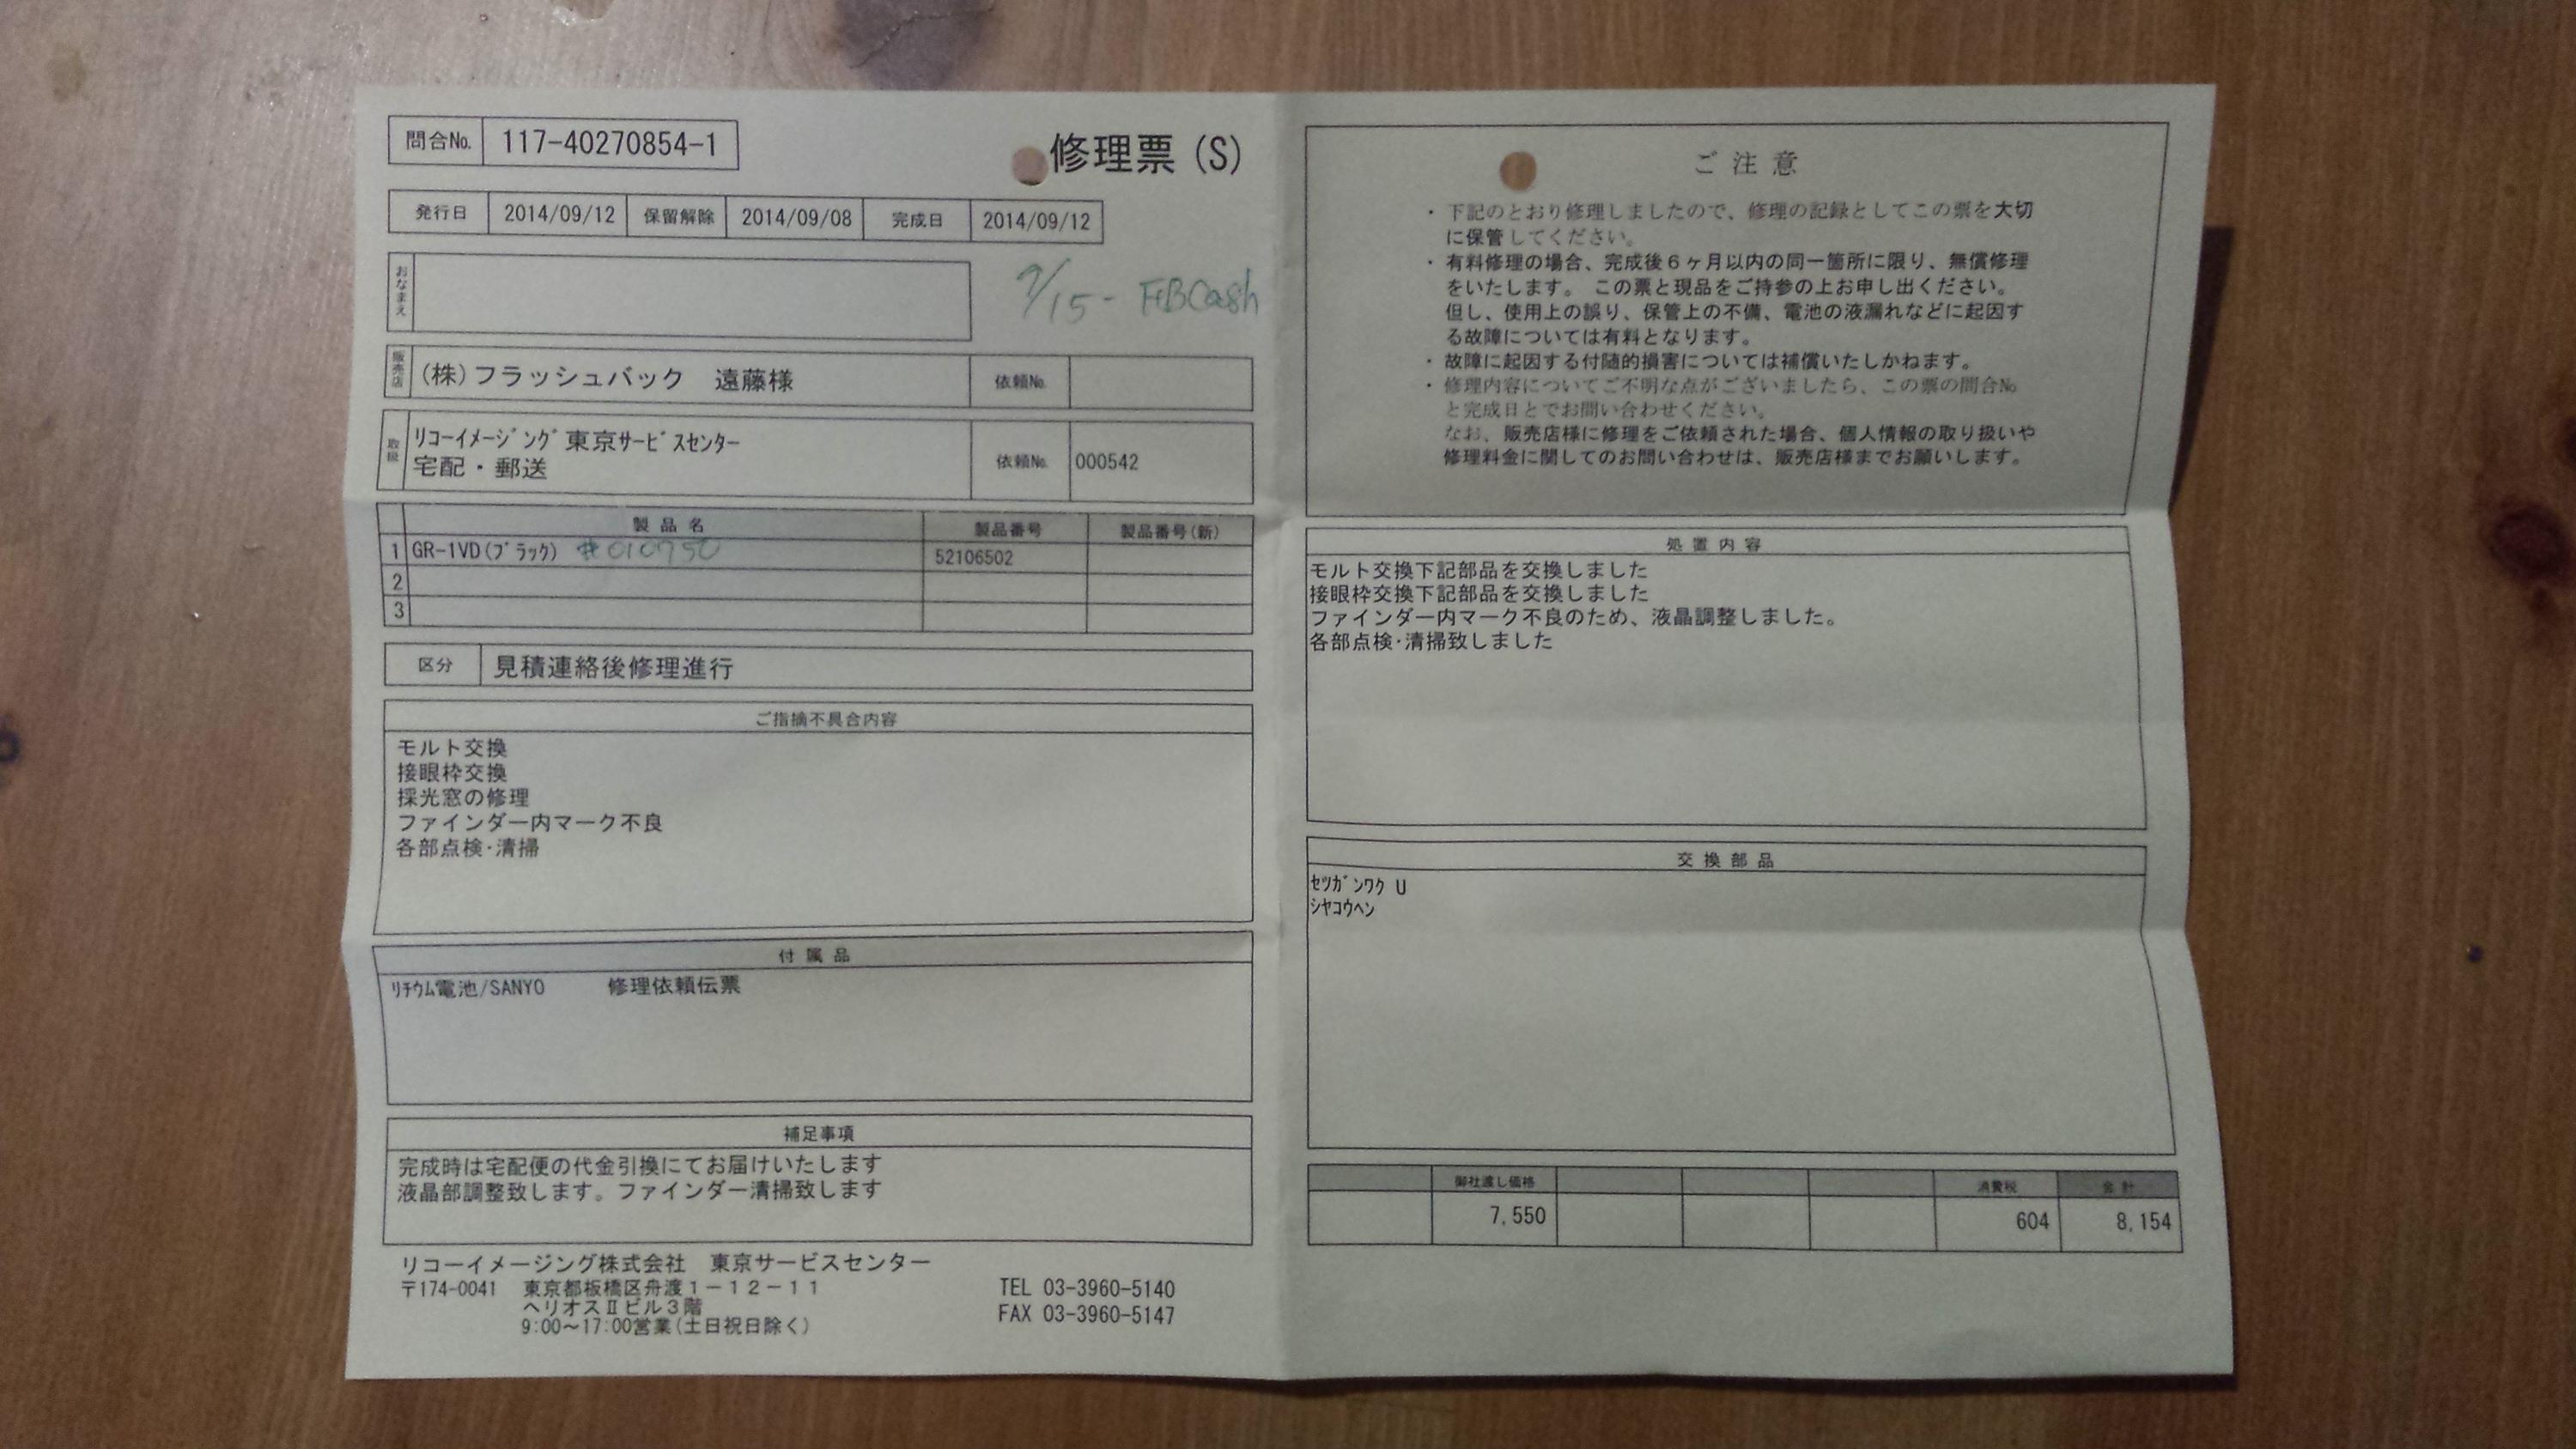 問合No. 117-40270854-1
修理票(S)
発行日 2014/09/12 保留解除 2014/09/08 完成日 2014/09/12
おなまえ
9/15- FBCash
販売店 (株)フラッシュバック 遠藤様 依頼No.
取扱 ﾘｺｰｲﾒｰｼﾞﾝｸﾞ東京ｻｰﾋﾞｽｾﾝﾀｰ
宅配・郵送 依頼No. 000542
製品名 製品番号 製品番号(新)
1 GR-1VD(ﾌﾞﾗｯｸ) #010750 52106502
2
3
区分 見積連絡後修理進行
ご指摘不具合内容
モルト交換
接眼枠交換
採光窓の修理
ファインダー内マーク不良
各部点検･清掃
付属品
ﾘﾁｳﾑ電池/SANYO 修理依頼伝票
補足事項
完成時は宅配便の代金引換にてお届けいたします
液晶部調整致します。ファインダー清掃致します
リコーイメージング株式会社 東京サービスセンター
〒174-0041 東京都板橋区舟渡１－１２－１１
ヘリオスⅡビル３階
9:00～17:00営業(土日祝日除く)
TEL 03-3960-5140
FAX 03-3960-5147
ご注意
・下記のとおり修理しましたので、修理の記録としてこの票を大切
に保管してください。
・有料修理の場合、完成後６ヶ月以内の同一箇所に限り、無償修理
をいたします。 この票と現品をご持参の上お申し出ください。
但し、使用上の誤り、保管上の不備、電池の液漏れなどに起因す
る故障については有料となります。
・故障に起因する付随的損害については補償いたしかねます。
・修理内容についてご不明な点がございましたら、この票の問合No
と完成日とでお問い合わせください。
なお、販売店様に修理をご依頼された場合、個人情報の取り扱いや
修理料金に関してのお問い合わせは、販売店様までお願いします。
処置内容
モルト交換下記部品を交換しました
接眼枠交換下記部品を交換しました
ファインダー内マーク不良のため、液晶調整しました。
各部点検･清掃致しました
交換部品
ｾﾂｶﾞﾝﾜｸ U
ｼﾔｺｳﾍﾝ
御社渡し価格 消費税 合計
7,550 604 8,154